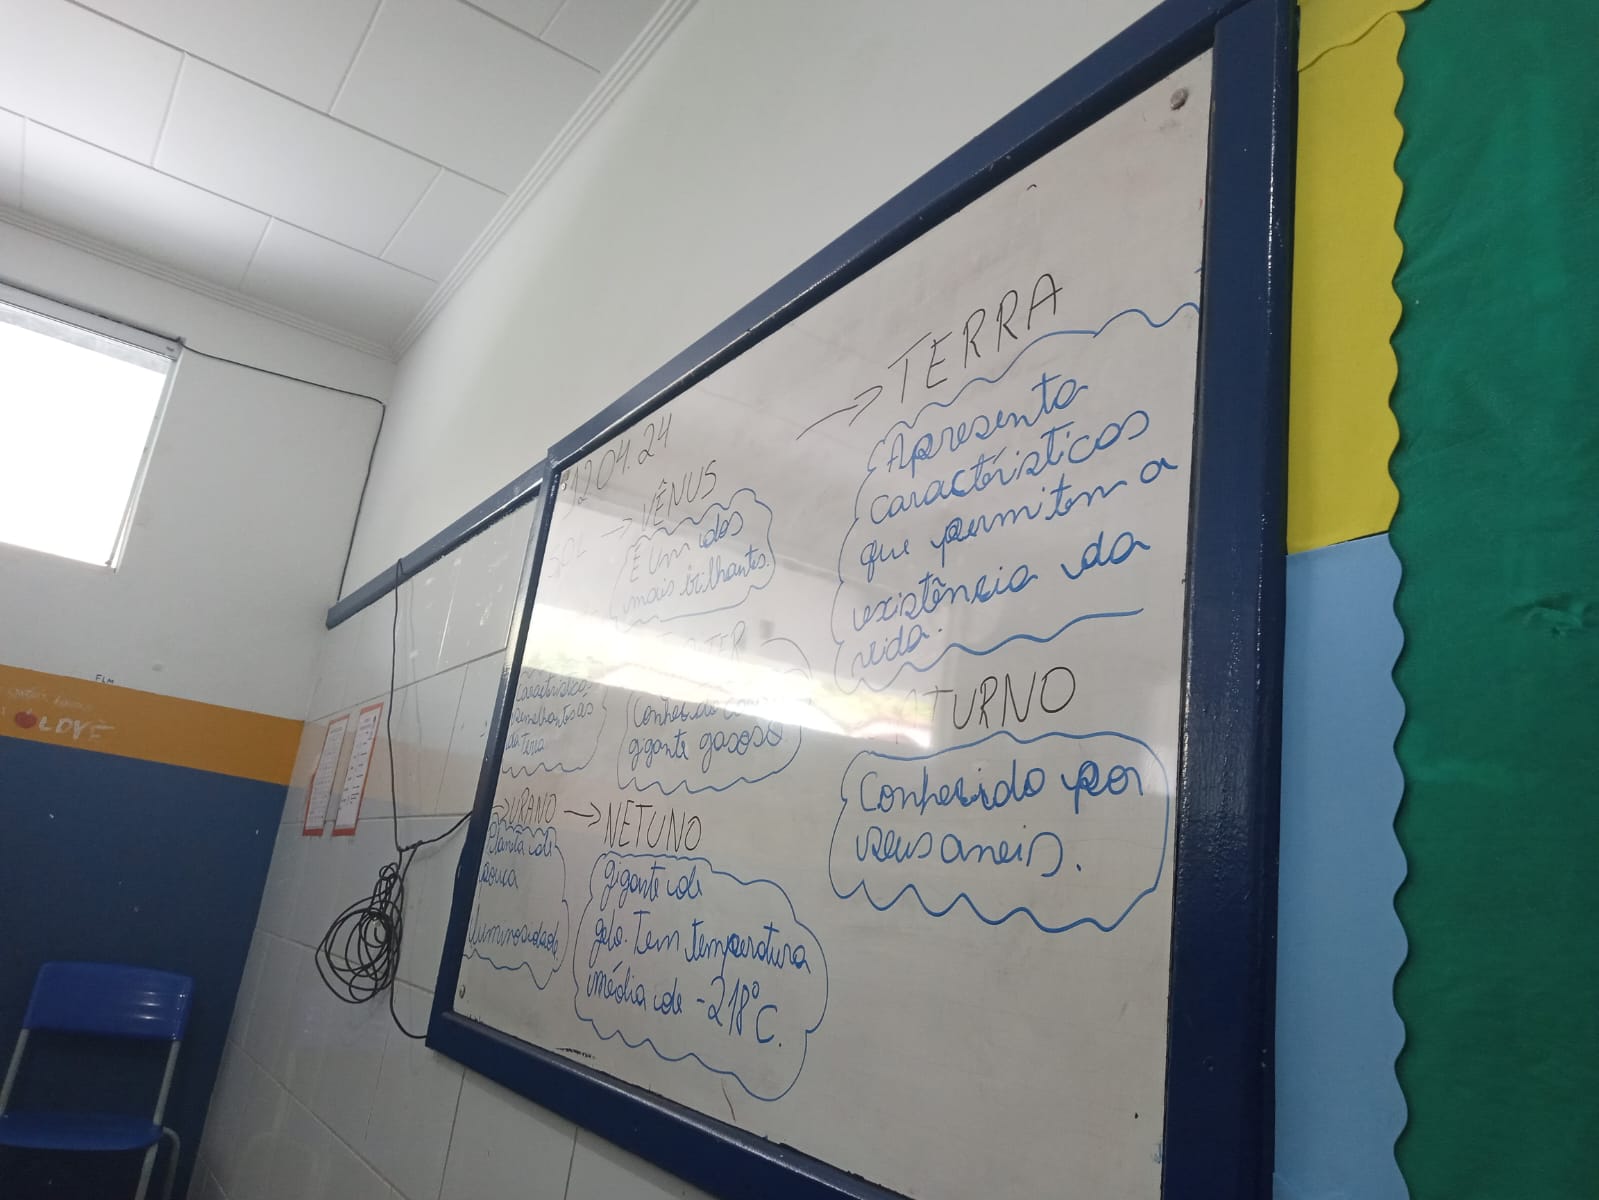 1204.24
SOL → VÊNUS
É um dos
mais brilhantes.
→ TERRA
Apresenta
características
que permitem a
existência da
vida.
características
semelhantes às
da terra
Conhecido como
gigante gasoso
TURNO
Conhecido por
seus aneis.
→ URANO → NETUNO
Planeta de
pouca
luminosidade
gigante de
gelo. Tem temperatura
média de -218°C.
FLM
LOVE